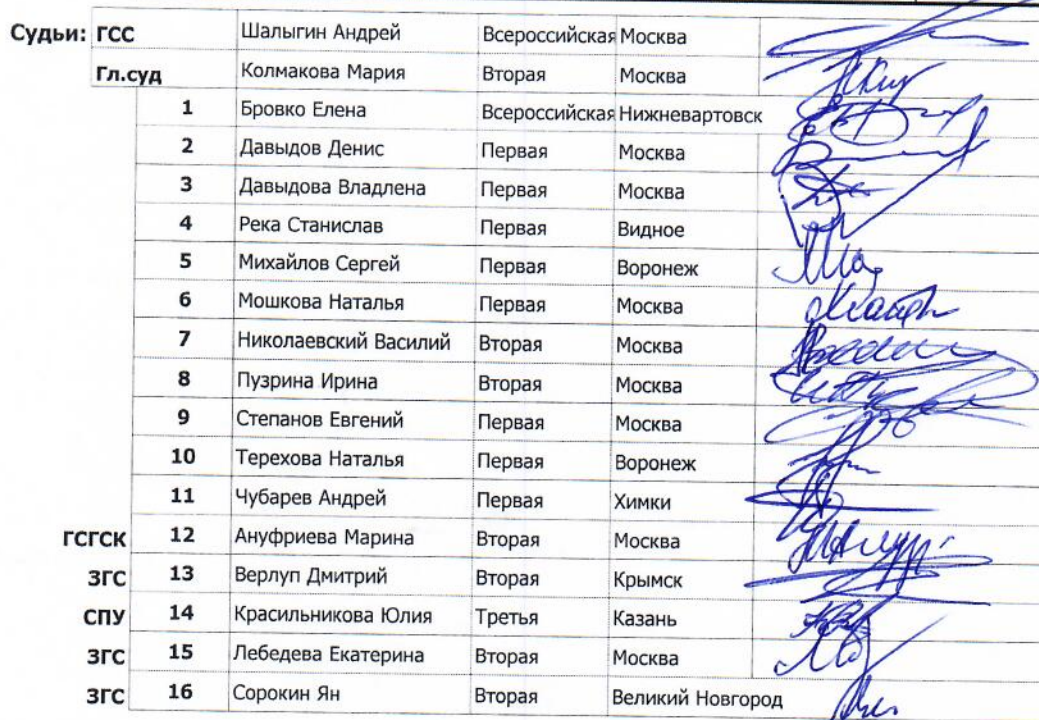 Судьи: ГСС Шалыгин Андрей Всероссийская Москва
Гл.суд Колмакова Мария Вторая Москва
1 Бровко Елена Всероссийская Нижневартовск
2 Давыдов Денис Первая Москва
3 Давыдова Владлена Первая Москва
4 Река Станислав Первая Видное
5 Михайлов Сергей Первая Воронеж
6 Мошкова Наталья Первая Москва
7 Николаевский Василий Вторая Москва
8 Пузрина Ирина Вторая Москва
9 Степанов Евгений Первая Москва
10 Терехова Наталья Первая Воронеж
11 Чубарев Андрей Первая Химки
ГСГСК 12 Ануфриева Марина Вторая Москва
ЗГС 13 Верлуп Дмитрий Вторая Крымск
СПУ 14 Красильникова Юлия Третья Казань
ЗГС 15 Лебедева Екатерина Вторая Москва
ЗГС 16 Сорокин Ян Вторая Великий Новгород